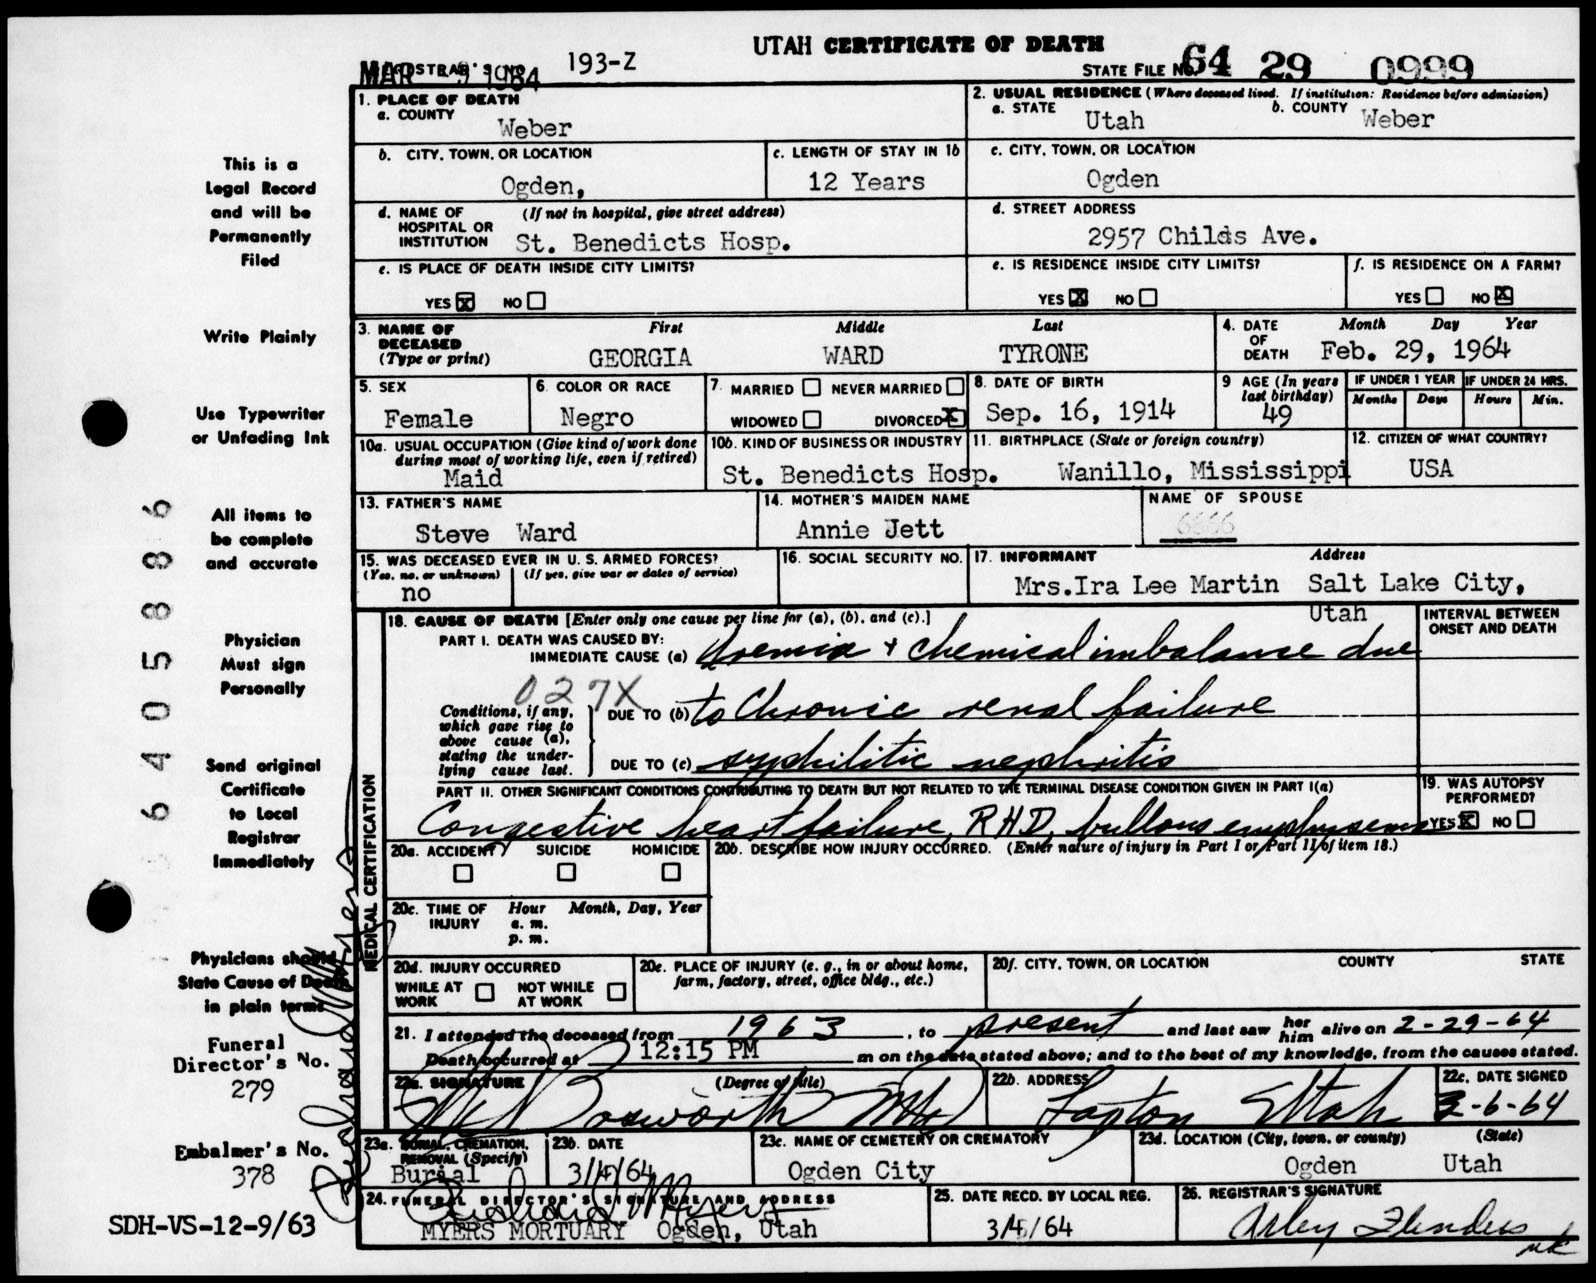 UTAH CERTIFICATE OF DEATH
MAR 1964 193-Z
STATE FILE NO. 64 29 0999
1. PLACE OF DEATH
a. COUNTY
Weber
2. USUAL RESIDENCE (Where deceased lived. If institution: Residence before admission)
a. STATE Utah b. COUNTY Weber
b. CITY, TOWN, OR LOCATION
Ogden,
c. LENGTH OF STAY IN 1b
12 Years
c. CITY, TOWN, OR LOCATION
Ogden
d. NAME OF HOSPITAL OR INSTITUTION (If not in hospital, give street address)
St. Benedicts Hosp.
d. STREET ADDRESS
2957 Childs Ave.
e. IS PLACE OF DEATH INSIDE CITY LIMITS?
YES X NO
e. IS RESIDENCE INSIDE CITY LIMITS?
YES X NO
f. IS RESIDENCE ON A FARM?
YES NO X
3. NAME OF DECEASED (Type or print)
First Middle Last
GEORGIA WARD TYRONE
4. DATE OF DEATH Month Day Year
Feb. 29, 1964
5. SEX
Female
6. COLOR OR RACE
Negro
7. MARRIED NEVER MARRIED
WIDOWED DIVORCED X
8. DATE OF BIRTH
Sep. 16, 1914
9 AGE (In years last birthday)
49
IF UNDER 1 YEAR IF UNDER 24 HRS.
Months Days Hours Min.
10a. USUAL OCCUPATION (Give kind of work done during most of working life, even if retired)
Maid
10b. KIND OF BUSINESS OR INDUSTRY
St. Benedicts Hosp.
11. BIRTHPLACE (State or foreign country)
Wanillo, Mississippi
12. CITIZEN OF WHAT COUNTRY?
USA
13. FATHER'S NAME
Steve Ward
14. MOTHER'S MAIDEN NAME
Annie Jett
NAME OF SPOUSE
15. WAS DECEASED EVER IN U. S. ARMED FORCES?
(Yes, no, or unknown) (If yes, give war or dates of service)
no
16. SOCIAL SECURITY NO.
17. INFORMANT Address
Mrs.Ira Lee Martin Salt Lake City,
Utah
18. CAUSE OF DEATH [Enter only one cause per line for (a), (b), and (c).]
PART I. DEATH WAS CAUSED BY:
IMMEDIATE CAUSE (a) Uremia + chemical imbalance due
027X
Conditions, if any, which gave rise to above cause (a), stating the underlying cause last.
DUE TO (b) to Chronic renal failure
DUE TO (c) syphilitic nephritis
INTERVAL BETWEEN ONSET AND DEATH
PART II. OTHER SIGNIFICANT CONDITIONS CONTRIBUTING TO DEATH BUT NOT RELATED TO THE TERMINAL DISEASE CONDITION GIVEN IN PART I(a)
Congestive heart failure, RHD, bullous emphysema
19. WAS AUTOPSY PERFORMED?
YES X NO
MEDICAL CERTIFICATION
20a. ACCIDENT SUICIDE HOMICIDE
20b. DESCRIBE HOW INJURY OCCURRED. (Enter nature of injury in Part I or Part II of item 18.)
20c. TIME OF INJURY Hour Month, Day, Year
a. m.
p. m.
20d. INJURY OCCURRED
WHILE AT WORK NOT WHILE AT WORK
20e. PLACE OF INJURY (e. g., in or about home, farm, factory, street, office bldg., etc.)
20f. CITY, TOWN, OR LOCATION COUNTY STATE
21. I attended the deceased from 1963, to present and last saw her him alive on 2-29-64
Death occurred at 12:15 PM m on the date stated above; and to the best of my knowledge, from the causes stated.
22a. SIGNATURE (Degree or title)
Bosworth MD
22b. ADDRESS
Layton Utah
22c. DATE SIGNED
3-6-64
23a. BURIAL, CREMATION, REMOVAL (Specify)
Burial
23b. DATE
3/4/64
23c. NAME OF CEMETERY OR CREMATORY
Ogden City
23d. LOCATION (City, town, or county) (State)
Ogden Utah
24. FUNERAL DIRECTOR'S SIGNATURE AND ADDRESS
MYERS MORTUARY Ogden, Utah
25. DATE RECD. BY LOCAL REG.
3/4/64
26. REGISTRAR'S SIGNATURE
Arley Flinders
This is a
Legal Record
and will be
Permanently
Filed
Write Plainly
Use Typewriter
or Unfading Ink
All items to
be complete
and accurate
Physician
Must sign
Personally
Send original
Certificate
to Local
Registrar
Immediately
Physicians should
State Cause of Death
in plain terms
Funeral
Director's No.
279
Embalmer's No.
378
SDH-VS-12-9/63
6405886